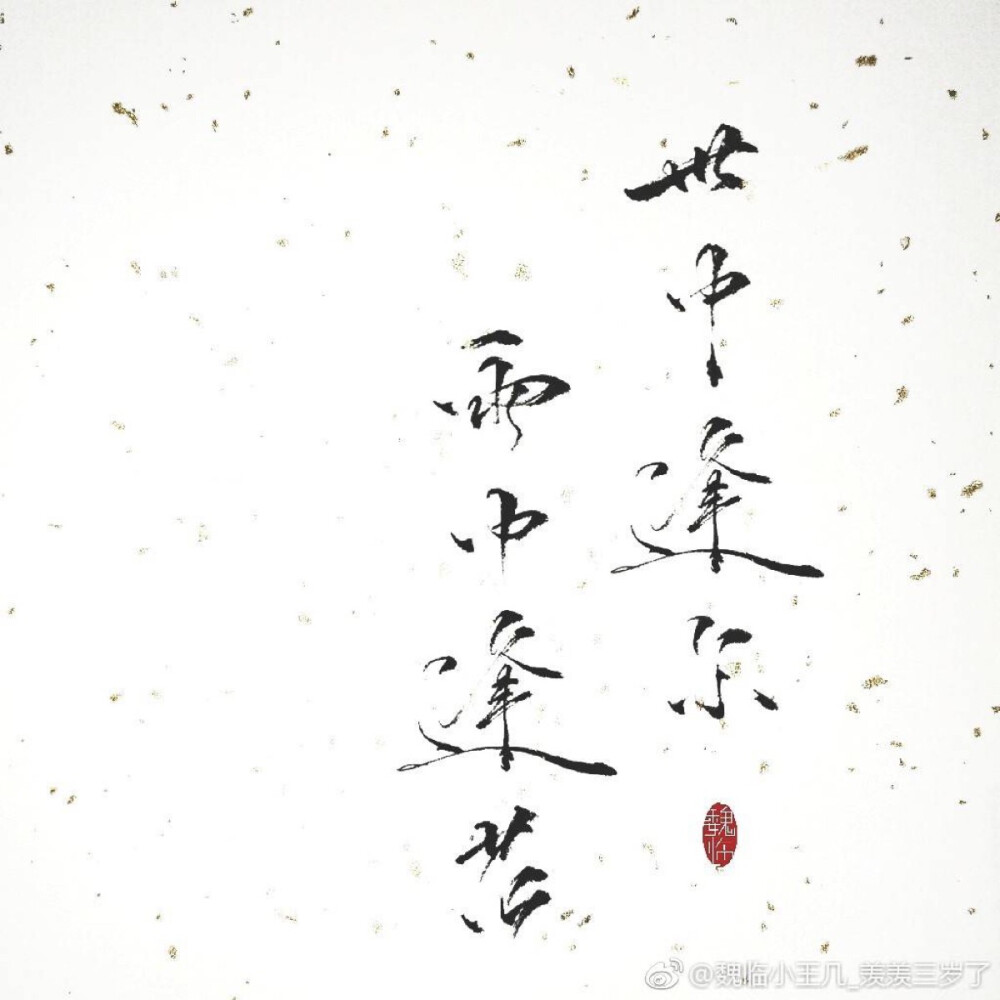 世中逢尔
雨中逢花
魏临
@魏临小王几_羡羡三岁了